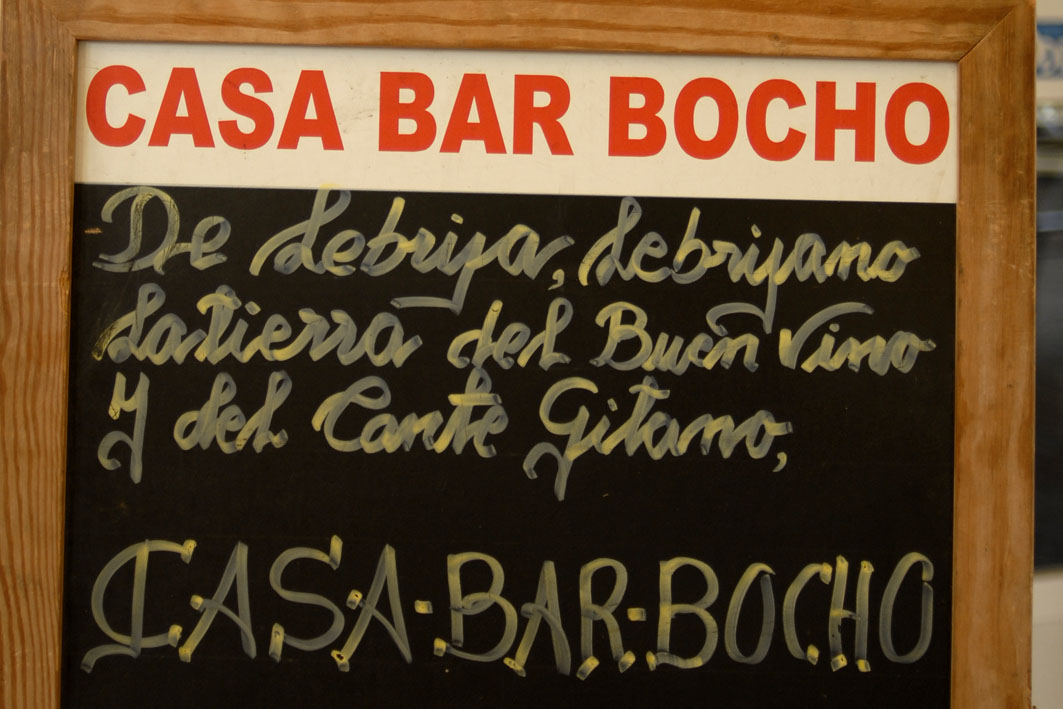 CASA BAR BOCHO
De Lebrija, Lebrijano
La tierra del Buen Vino
Y del Cante Gitano,
CASA-BAR-BOCHO